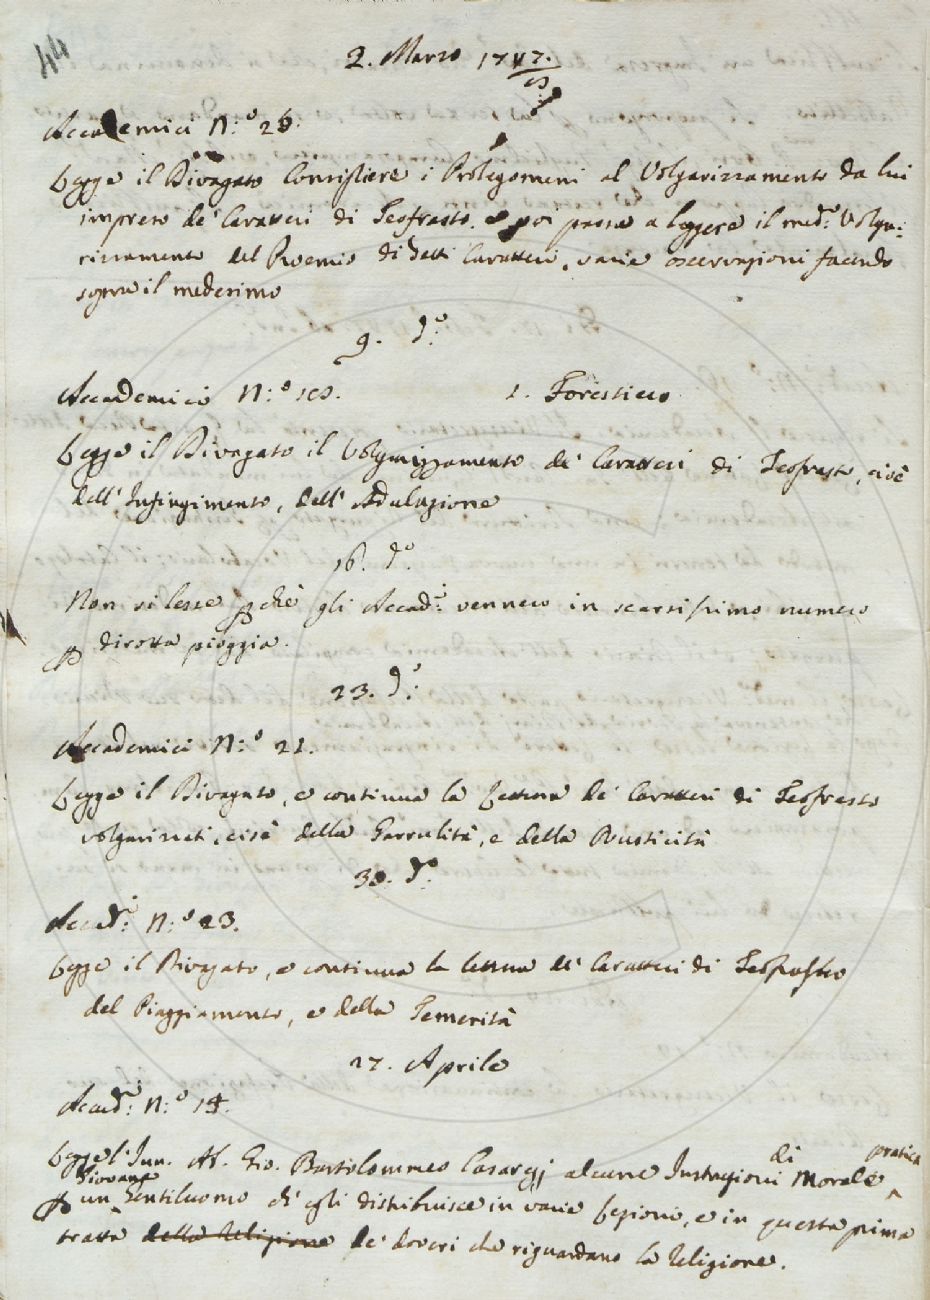 44
2. Marzo 1747.
Accademici N:º 26.
Legge il Divagato Consigliere i Prolegomeni al Volgarizzamento da lui
impreso de' Caratteri di Teofrasto. e poi passa a leggere il med:º Volga:
rizzamento del Proemio di detti Caratteri, varie osservazioni facendo
sopra il medesimo
9. dº:
Accademici N:º 20. 1. Forestiero
Legge il Divagato il Volgarizzamento de' Caratteri di Teofrasto, cioè
dell' Infingimento, dell' Adulazione
16. dº:
Non si lesse pchè gli Accad:i vennero in scarsissimo numero
p dirotta pioggia.
23. dº:
Accademici N:º 21.
Legge il Divagato, e continua la lettura de' Caratteri di Teofrasto
volgarizzati, cioè della Garrulità, e della Rusticità
30. dº:
Accad:i N:º 23.
Legge il Divagato, e continua la lettura de' Caratteri di Teofrasto
del Piaggiamento, e della Temerità
27. Aprile
Accad:i N:º 14.
di pratica
Legge l' Inn. Ab. Gio. Bartolommeo Casaregj alcune Instruzioni Morale
Giovane
p un Gentiluomo ch' egli distribuisce in varie Lezioni, e in questa prima
tratta della Religione de' doveri che riguardano la Religione.